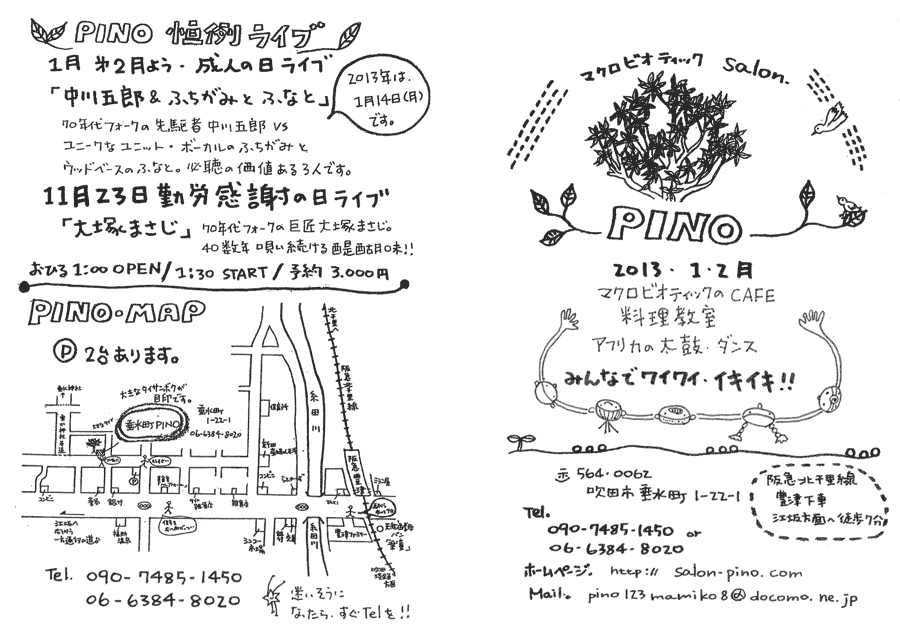 PINO 恒例ライブ
1月 第2月よう・成人の日ライブ
「中川五郎 & ふちがみとふなと」
2013年は、
1月14日(月)
です。
70年代フォークの先駆者 中川五郎 VS
ユニークなユニット・ボーカルのふちがみと
ウッドベースのふなと。必聴の価値ある3人です。
11月23日 勤労感謝の日ライブ
「大塚まさじ」
70年代フォークの巨匠 大塚まさじ。
40数年 唄い続ける
おひる 1:00 OPEN / 1:30 START / 予約 3.000円
PINO・MAP
P 2台あります。
大きなタイサンボクが
目印です。
垂水町PINO
垂水町
1-22-1
06-6384-8020
垂水神社
糸田川
北千里へ
阪急千里線
阪急豊津
コンビニ
コンビニ
豊津ファミリー
糸田川
江坂へ
一方通行の道
Tel. 090-7485-1450
06-6384-8020
迷いそうに
なったら、すぐTelを!!
マクロビオティック Salon.
PINO
2013・1・2月
マクロビオティックの CAFE
料理教室
アフリカの太鼓・ダンス
みんなでワイワイ・イキイキ!!
〒564.0062
吹田市垂水町 1-22-1
Tel.
090-7485-1450 or
06-6384-8020
阪急北千里線
豊津下車
江坂方面へ徒歩7分
ホームページ. http:// salon-pino.com
Mail. pino123mamiko8@docomo.ne.jp